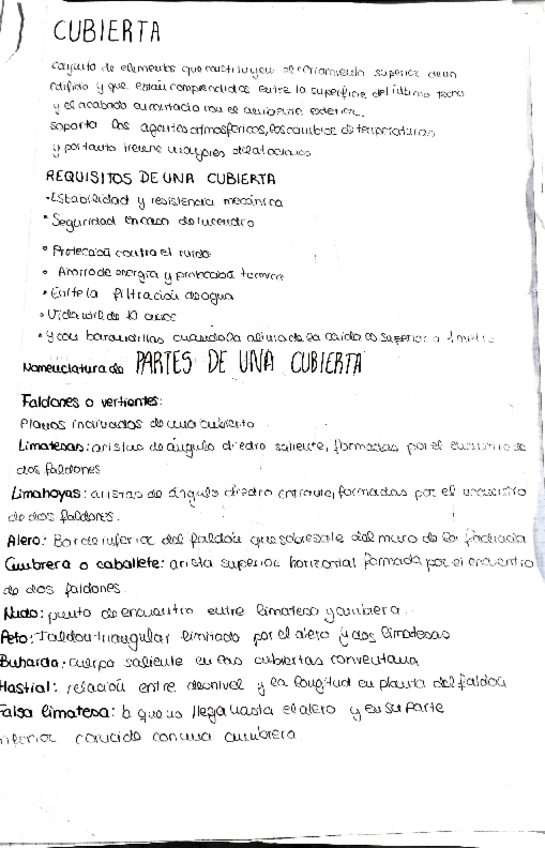 CUBIERTA
conjunto de elementos que constituyen el cerramiento superior de un
edificio y que están comprendidos entre la superficie del último techo
y el acabado en contacto con el ambiente exterior.
soporta los agentes atmosfericos, los cambios de temperaturas
y por tanto tienen mayores dilataciones
REQUISITOS DE UNA CUBIERTA
• Estabilidad y resistencia mecánica
• Seguridad en caso de incendio
• Protección contra el ruido
• Ahorro de energía y protección termica
• Evite la filtración de agua
• Vida util de 10 años
• y con barandillas cuando la altura de la caída es superior a 1 metro
Nomenclatura de PARTES DE UNA CUBIERTA
Faldones o vertientes:
Planos inclinados de una cubierta
Limatesas: aristas de ángulo diedro saliente, formadas por el encuentro de
dos faldones
Limahoyas: aristas de ángulo diedro entrante, formadas por el encuentro
de dos faldones.
Alero: Borde inferior del faldón que sobresale del muro de la fachada
Cumbrera o caballete: arista superior horizontal formada por el encuentro
de dos faldones.
Nudo: punto de encuentro entre limatesa y cumbrera.
Peto: Faldon triangular limitado por el alero y dos limatesas
Buharda: cuerpo saliente en las cubiertas con ventana
Hastial: relación entre desnivel y la longitud en planta del faldón
Falsa limatesa: la que no llega hasta el alero y en su parte
inferior coincide con una cumbrera